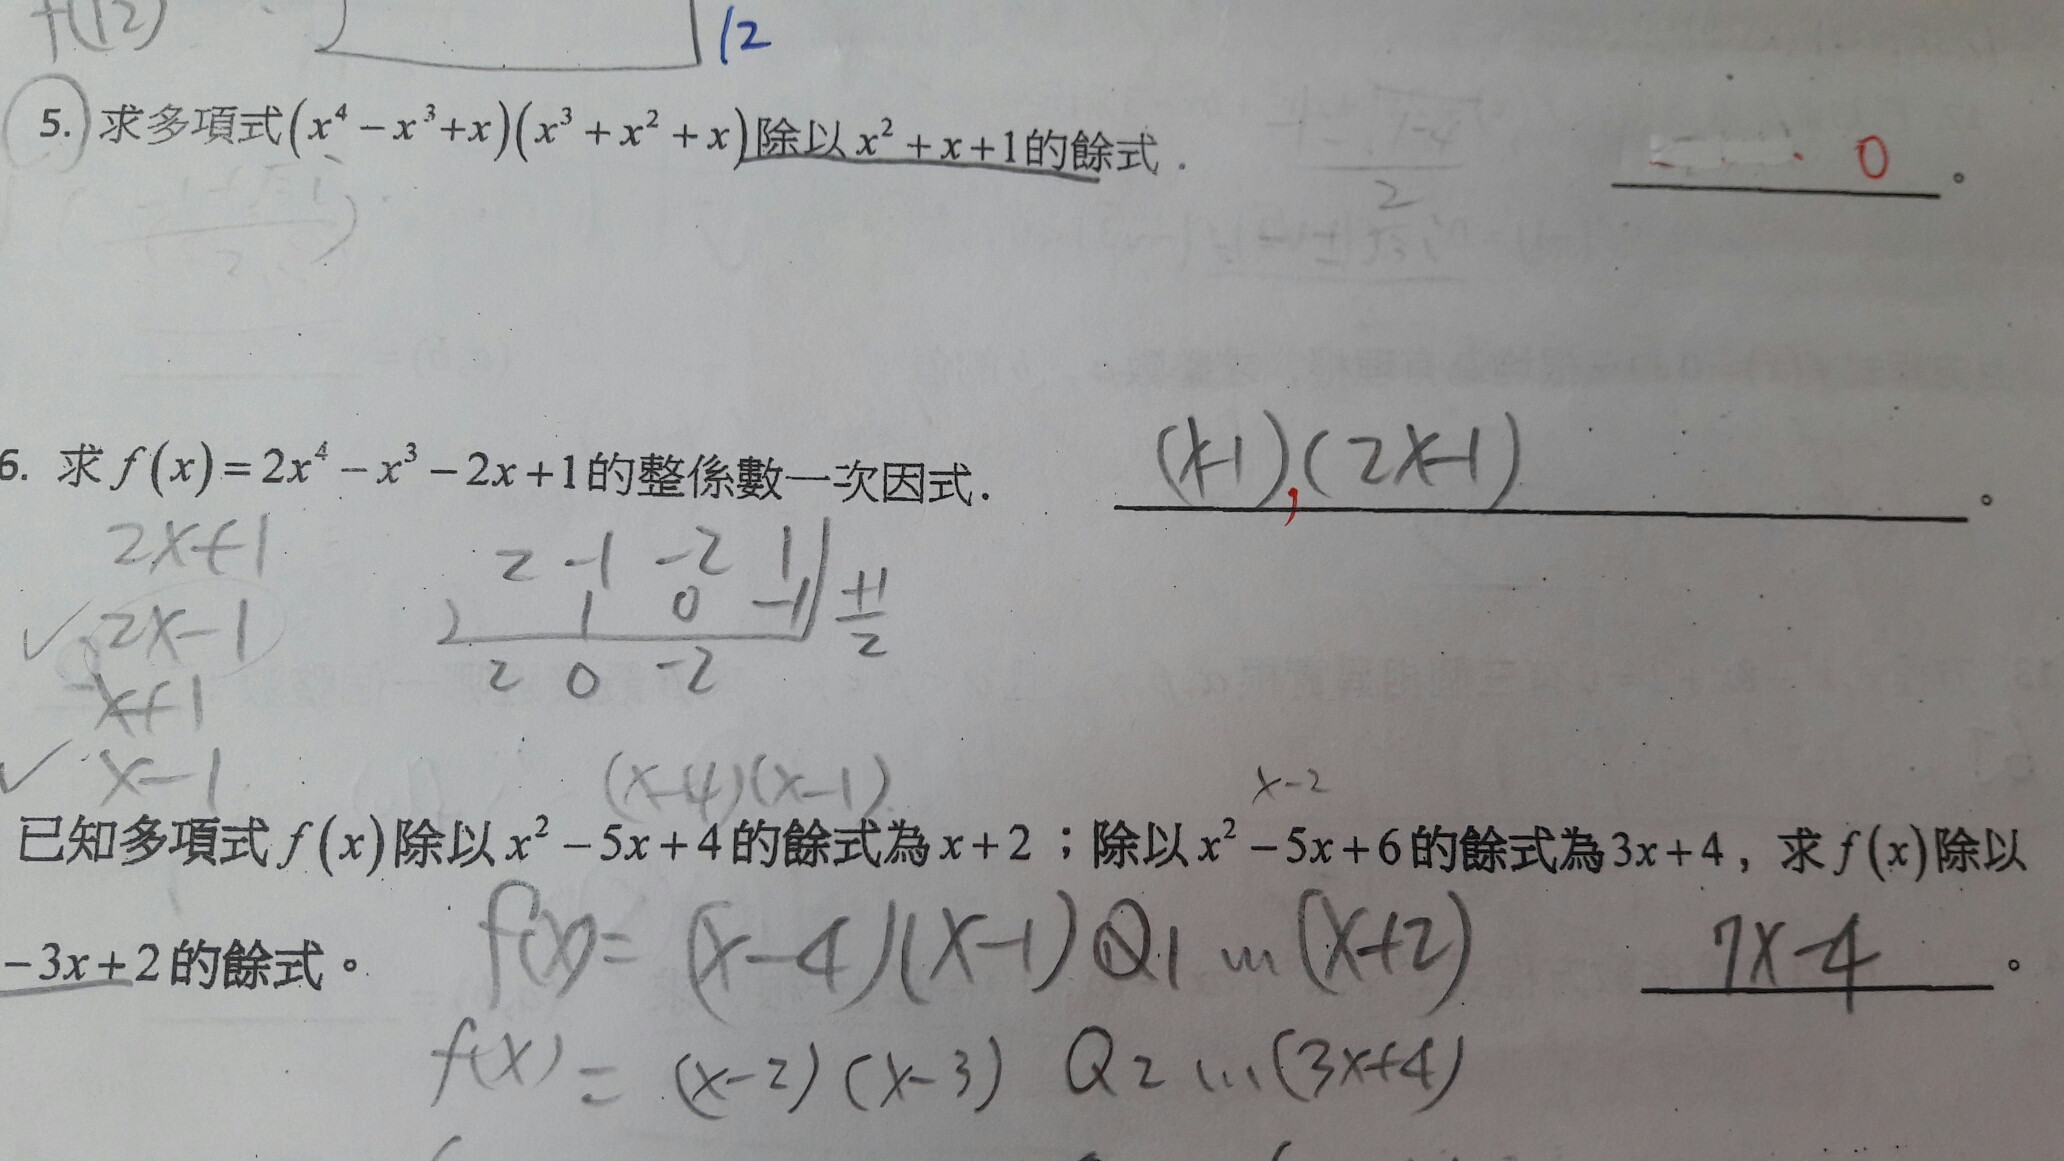 f(12)
12
5. 求多項式(x⁴−x³+x)(x³+x²+x)除以x²+x+1的餘式.
0。
6. 求f(x)=2x⁴−x³−2x+1的整係數一次因式.
(x-1),(2x-1)。
2x+1
2 -1 -2 1
✓ 2x-1
1 0 -1 +1/2
2 0 -2
x+1
✓ x-1
(x-4)(x-1)
x-2
已知多項式f(x)除以x²−5x+4的餘式為x+2;除以x²−5x+6的餘式為3x+4,求f(x)除以
−3x+2的餘式。
f(x)= (x-4)(x-1) Q1 ... (x+2)
7x-4。
f(x) = (x-2)(x-3) Q2 ... (3x+4)